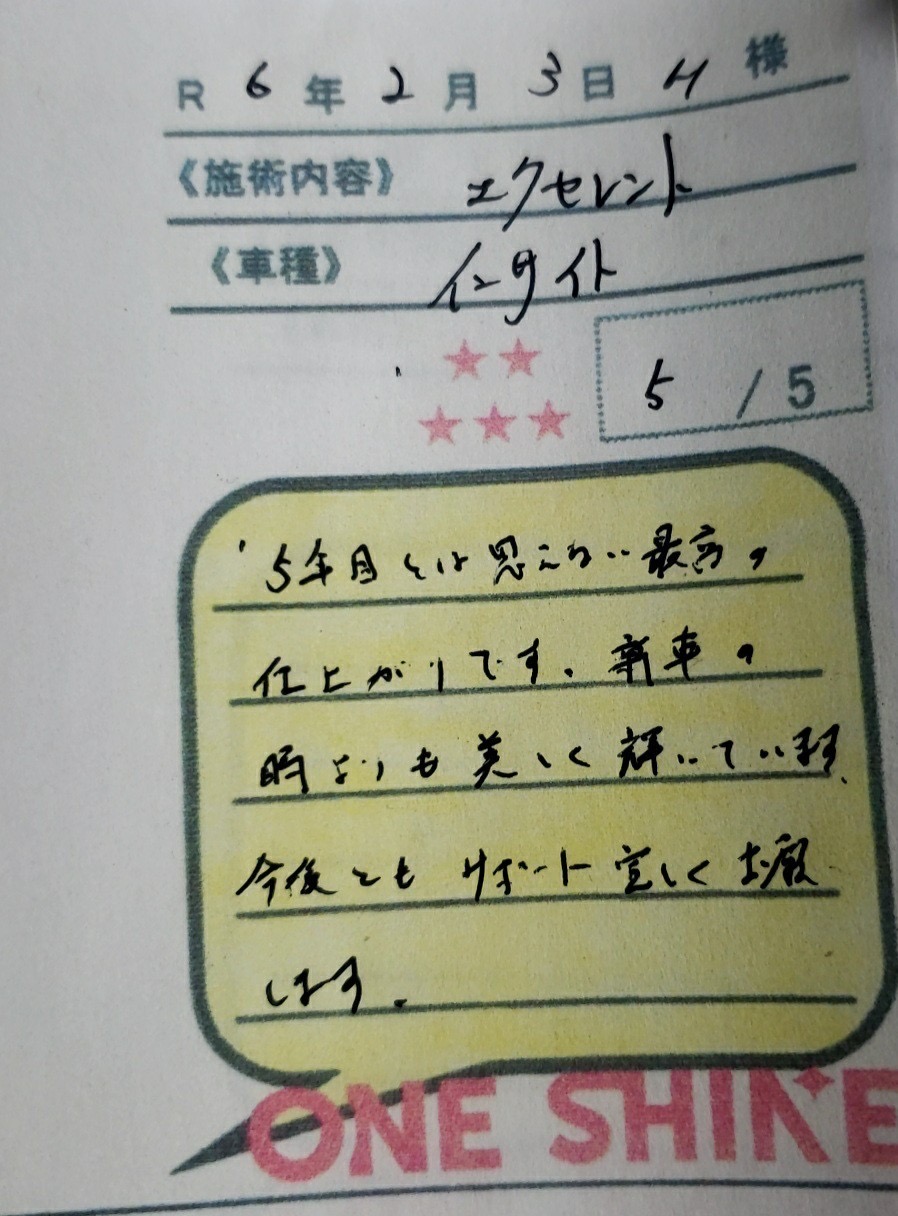 R 6年 2月 3日 H 様
《施術内容》 エクセレント
《車種》 インサイト
5 / 5
5年目とは思えない最高の
仕上がりです。新車の
時よりも美しく輝いています、
今後とも サポート宜しくお願
します。
ONE SHINE